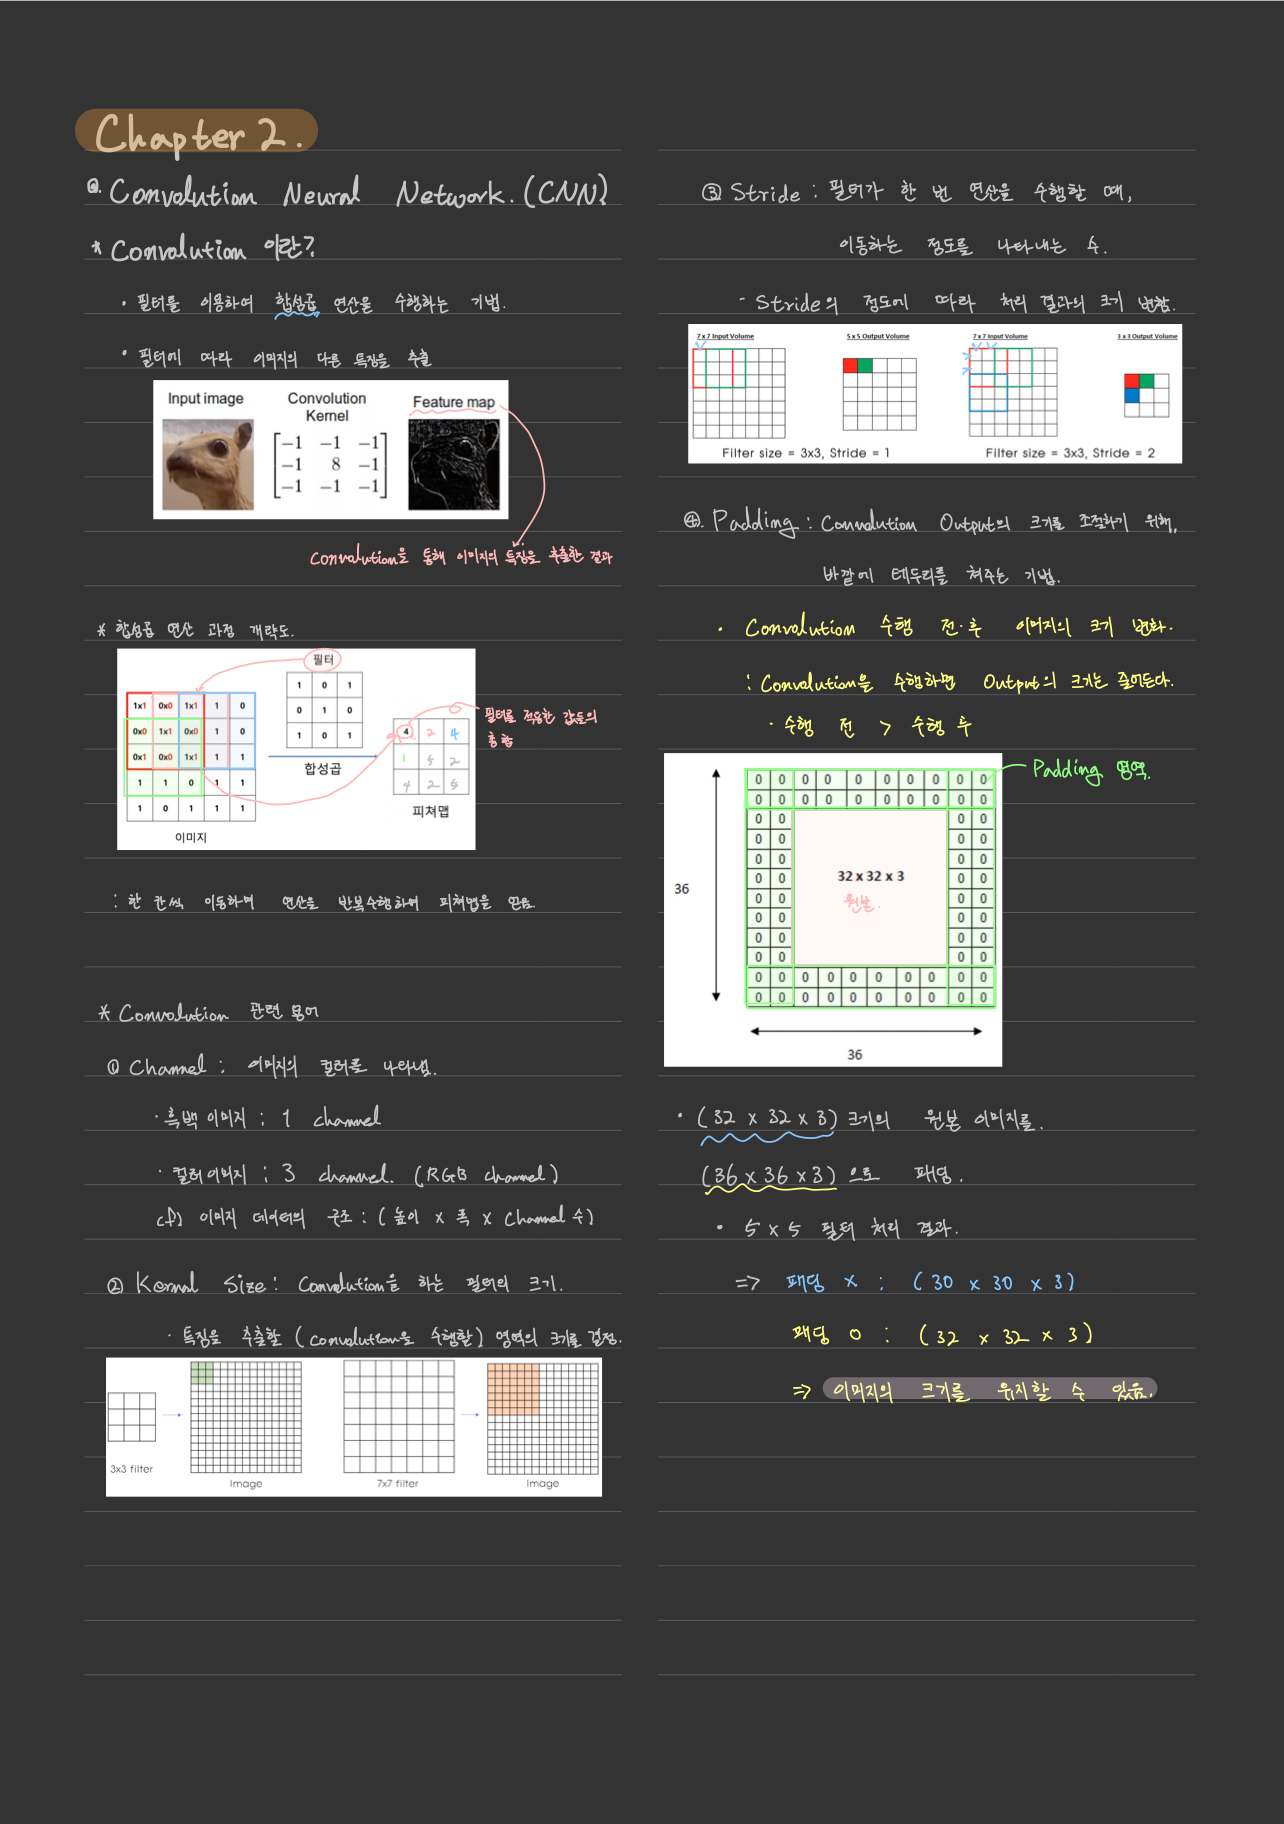 Chapter 2.
@. Convolution Neural Network. (CNN)
* Convolution 이란?
• 필터를 이용하여 합성곱 연산을 수행하는 기법.
• 필터에 따라 이미지의 다른 특징을 추출
Input image
Convolution Kernel
Feature map
-1 -1 -1
-1 8 -1
-1 -1 -1
Convolution을 통해 이미지의 특징을 추출한 결과
* 합성곱 연산 과정 개략도.
필터
1 0 1
0 1 0
1 0 1
1x1 0x0 1x1 1 0
0x0 1x1 0x0 1 0
0x1 0x0 1x1 1 1
1 1 0 1
1 0 1 1 1
이미지
합성곱
4 2 4
1 5 2
4 2 5
피쳐맵
필터를 적용한 값들의
총 합
: 한 칸씩 이동하며 연산을 반복수행하여 피쳐맵을 만듦.
* Convolution 관련 용어
① Channel : 이미지의 컬러를 나타냄.
· 흑백 이미지 : 1 channel
· 컬러이미지 : 3 channel. (RGB channel)
cf) 이미지 데이터의 구조 : (높이 x 폭 x Channel 수)
② Kernal Size : Convolution을 하는 필터의 크기.
· 특징을 추출할 (convolution을 수행할) 영역의 크기를 결정.
3x3 filter
Image
7x7 filter
Image
③ Stride : 필터가 한 번 연산을 수행할 때,
이동하는 정도를 나타내는 수.
- Stride의 정도에 따라 처리 결과의 크기 변함.
7 x 7 Input Volume
5 x 5 Output Volume
7 x 7 Input Volume
3 x 3 Output Volume
Filter size = 3x3, Stride = 1
Filter size = 3x3, Stride = 2
④. Padding : Convolution Output의 크기를 조절하기 위해,
바깥에 테두리를 쳐주는 기법.
· Convolution 수행 전·후 이미지의 크기 변화.
: Convolution을 수행하면 Output의 크기는 줄어든다.
· 수행 전 > 수행 후
Padding 영역.
0 0 0 0 0 0 0 0 0 0
0 0 0 0 0 0 0 0 0 0
0 0 0 0
0 0 0 0
0 0 0 0
0 0 0 0
0 0 0 0
0 0 0 0
0 0 0 0
0 0 0 0
0 0 0 0 0 0 0 0 0 0
0 0 0 0 0 0 0 0 0 0
32 x 32 x 3
원본.
36
36
• (32 x 32 x 3) 크기의 원본 이미지를.
(36 x 36 x 3) 으로 패딩.
• 5 x 5 필터 처리 결과.
=> 패딩 X : (30 x 30 x 3)
패딩 O : (32 x 32 x 3)
=> 이미지의 크기를 유지할 수 있음.